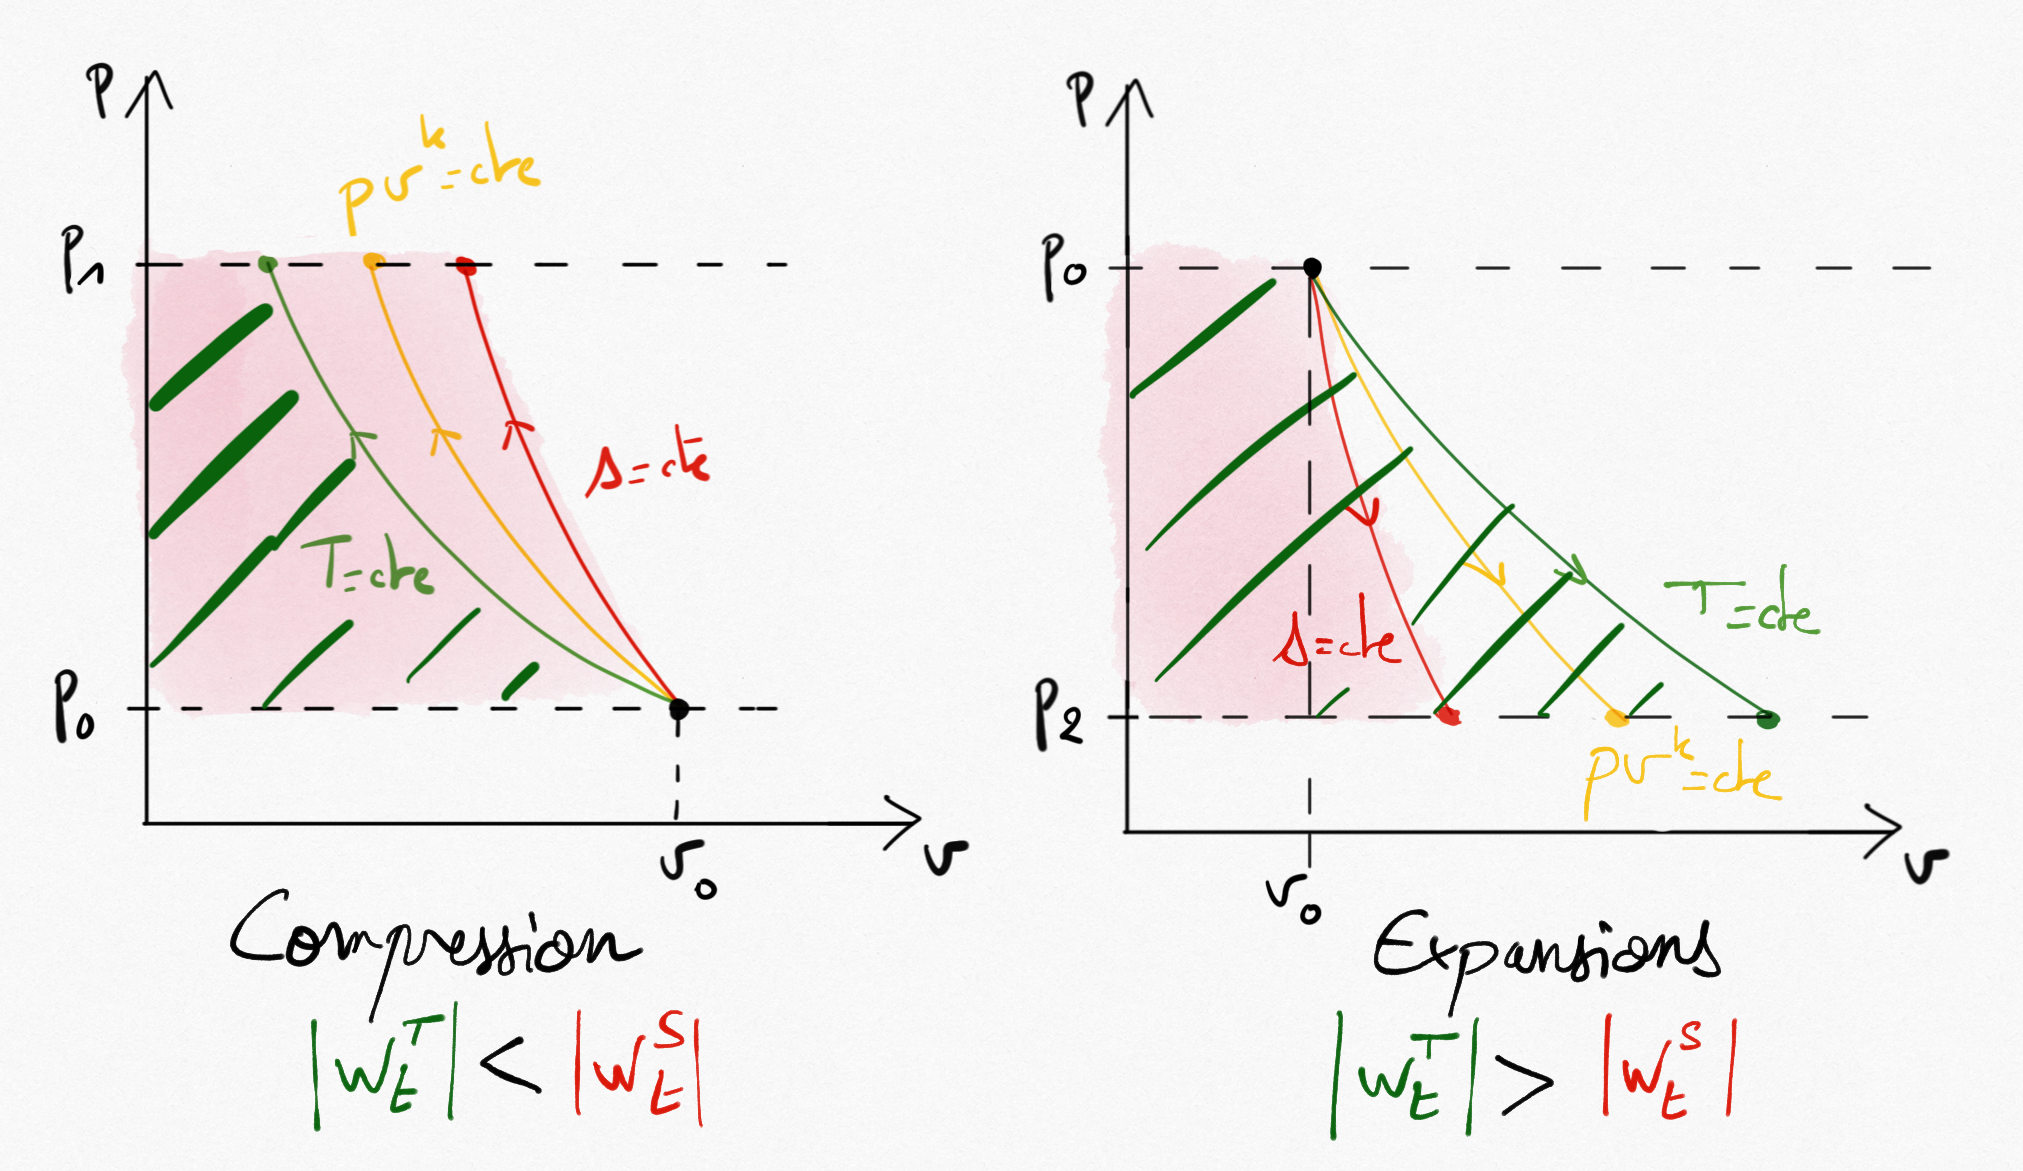 P
pv^k=cte
P₁
s=cte
T=cte
P₀
v₀
v
Compression
|w_t^T| < |w_t^S|
P
P₀
T=cte
s=cte
P₂
pv^k=cte
v₀
v
Expansions
|w_t^T| > |w_t^S|